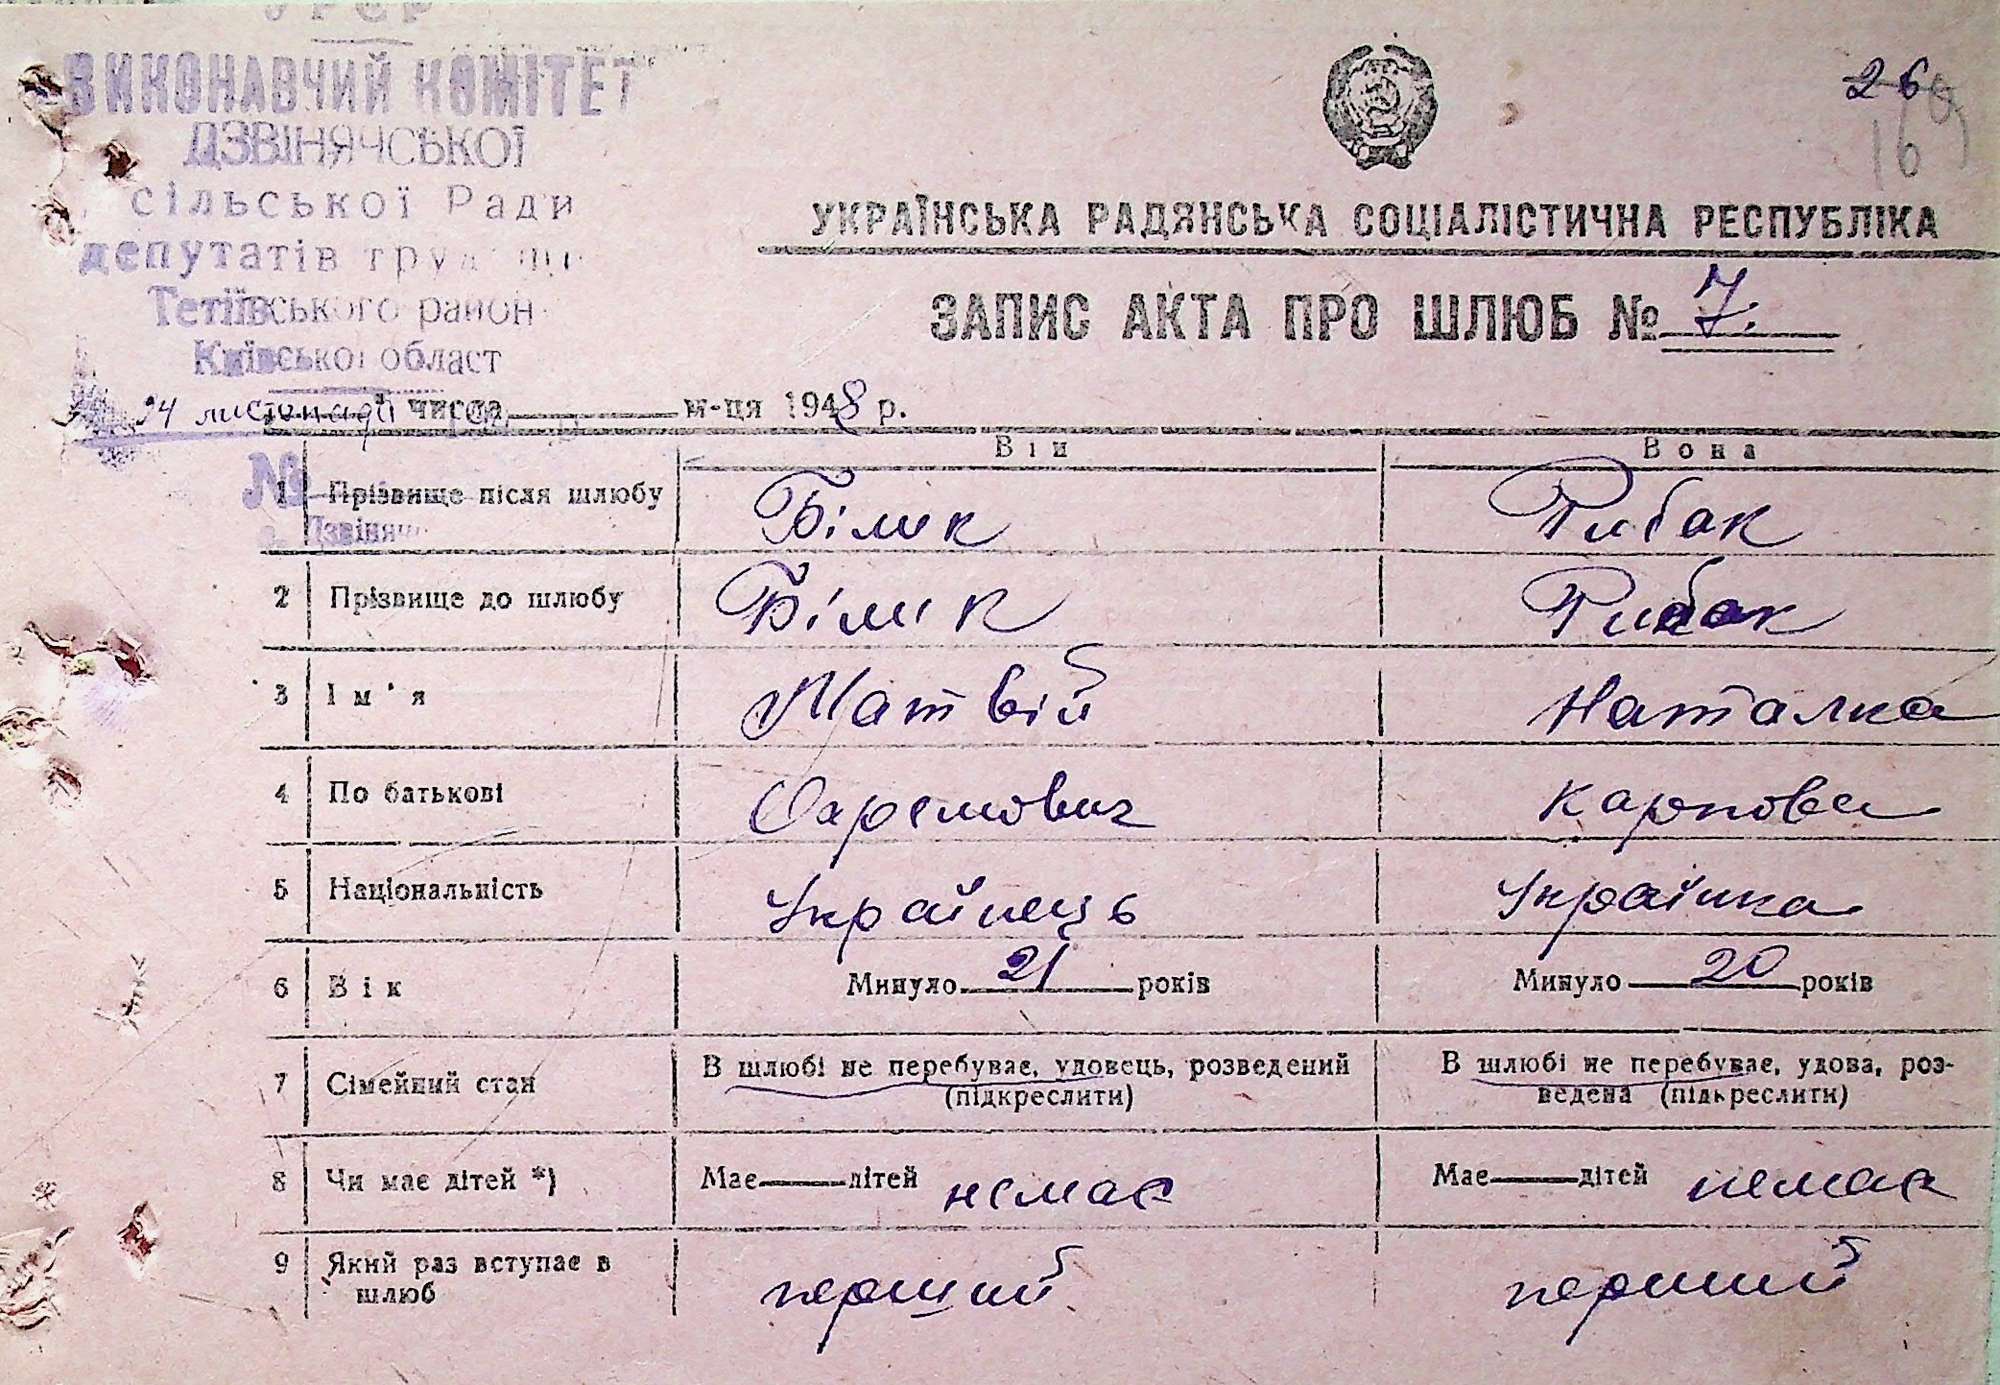 УРСР
ВИКОНАВЧИЙ КОМІТЕТ
ДЗВІНЯЧСЬКОЇ
сільської Ради
депутатів
Тетіївського район
Київської област
26
16
УКРАЇНСЬКА РАДЯНСЬКА СОЦІАЛІСТИЧНА РЕСПУБЛІКА
ЗАПИС АКТА ПРО ШЛЮБ № 7.
24 листопада числа м-ця 1948 р.
Він Вона
№
1 Прізвище після шлюбу Білик Рибак
с. Дзвіняч
2 Прізвище до шлюбу Білик Рибак
3 Ім'я Матвій Наталка
4 По батькові Охремович Карпова
5 Національність Українець Українка
6 Вік Минуло 21 років Минуло 20 років
7 Сімейний стан В шлюбі не перебуває, удовець, розведений В шлюбі не перебуває, удова, роз-
(підкреслити) ведена (підкреслити)
8 Чи має дітей *) Має дітей немає Має дітей немає
9 Який раз вступає в шлюб перший перший